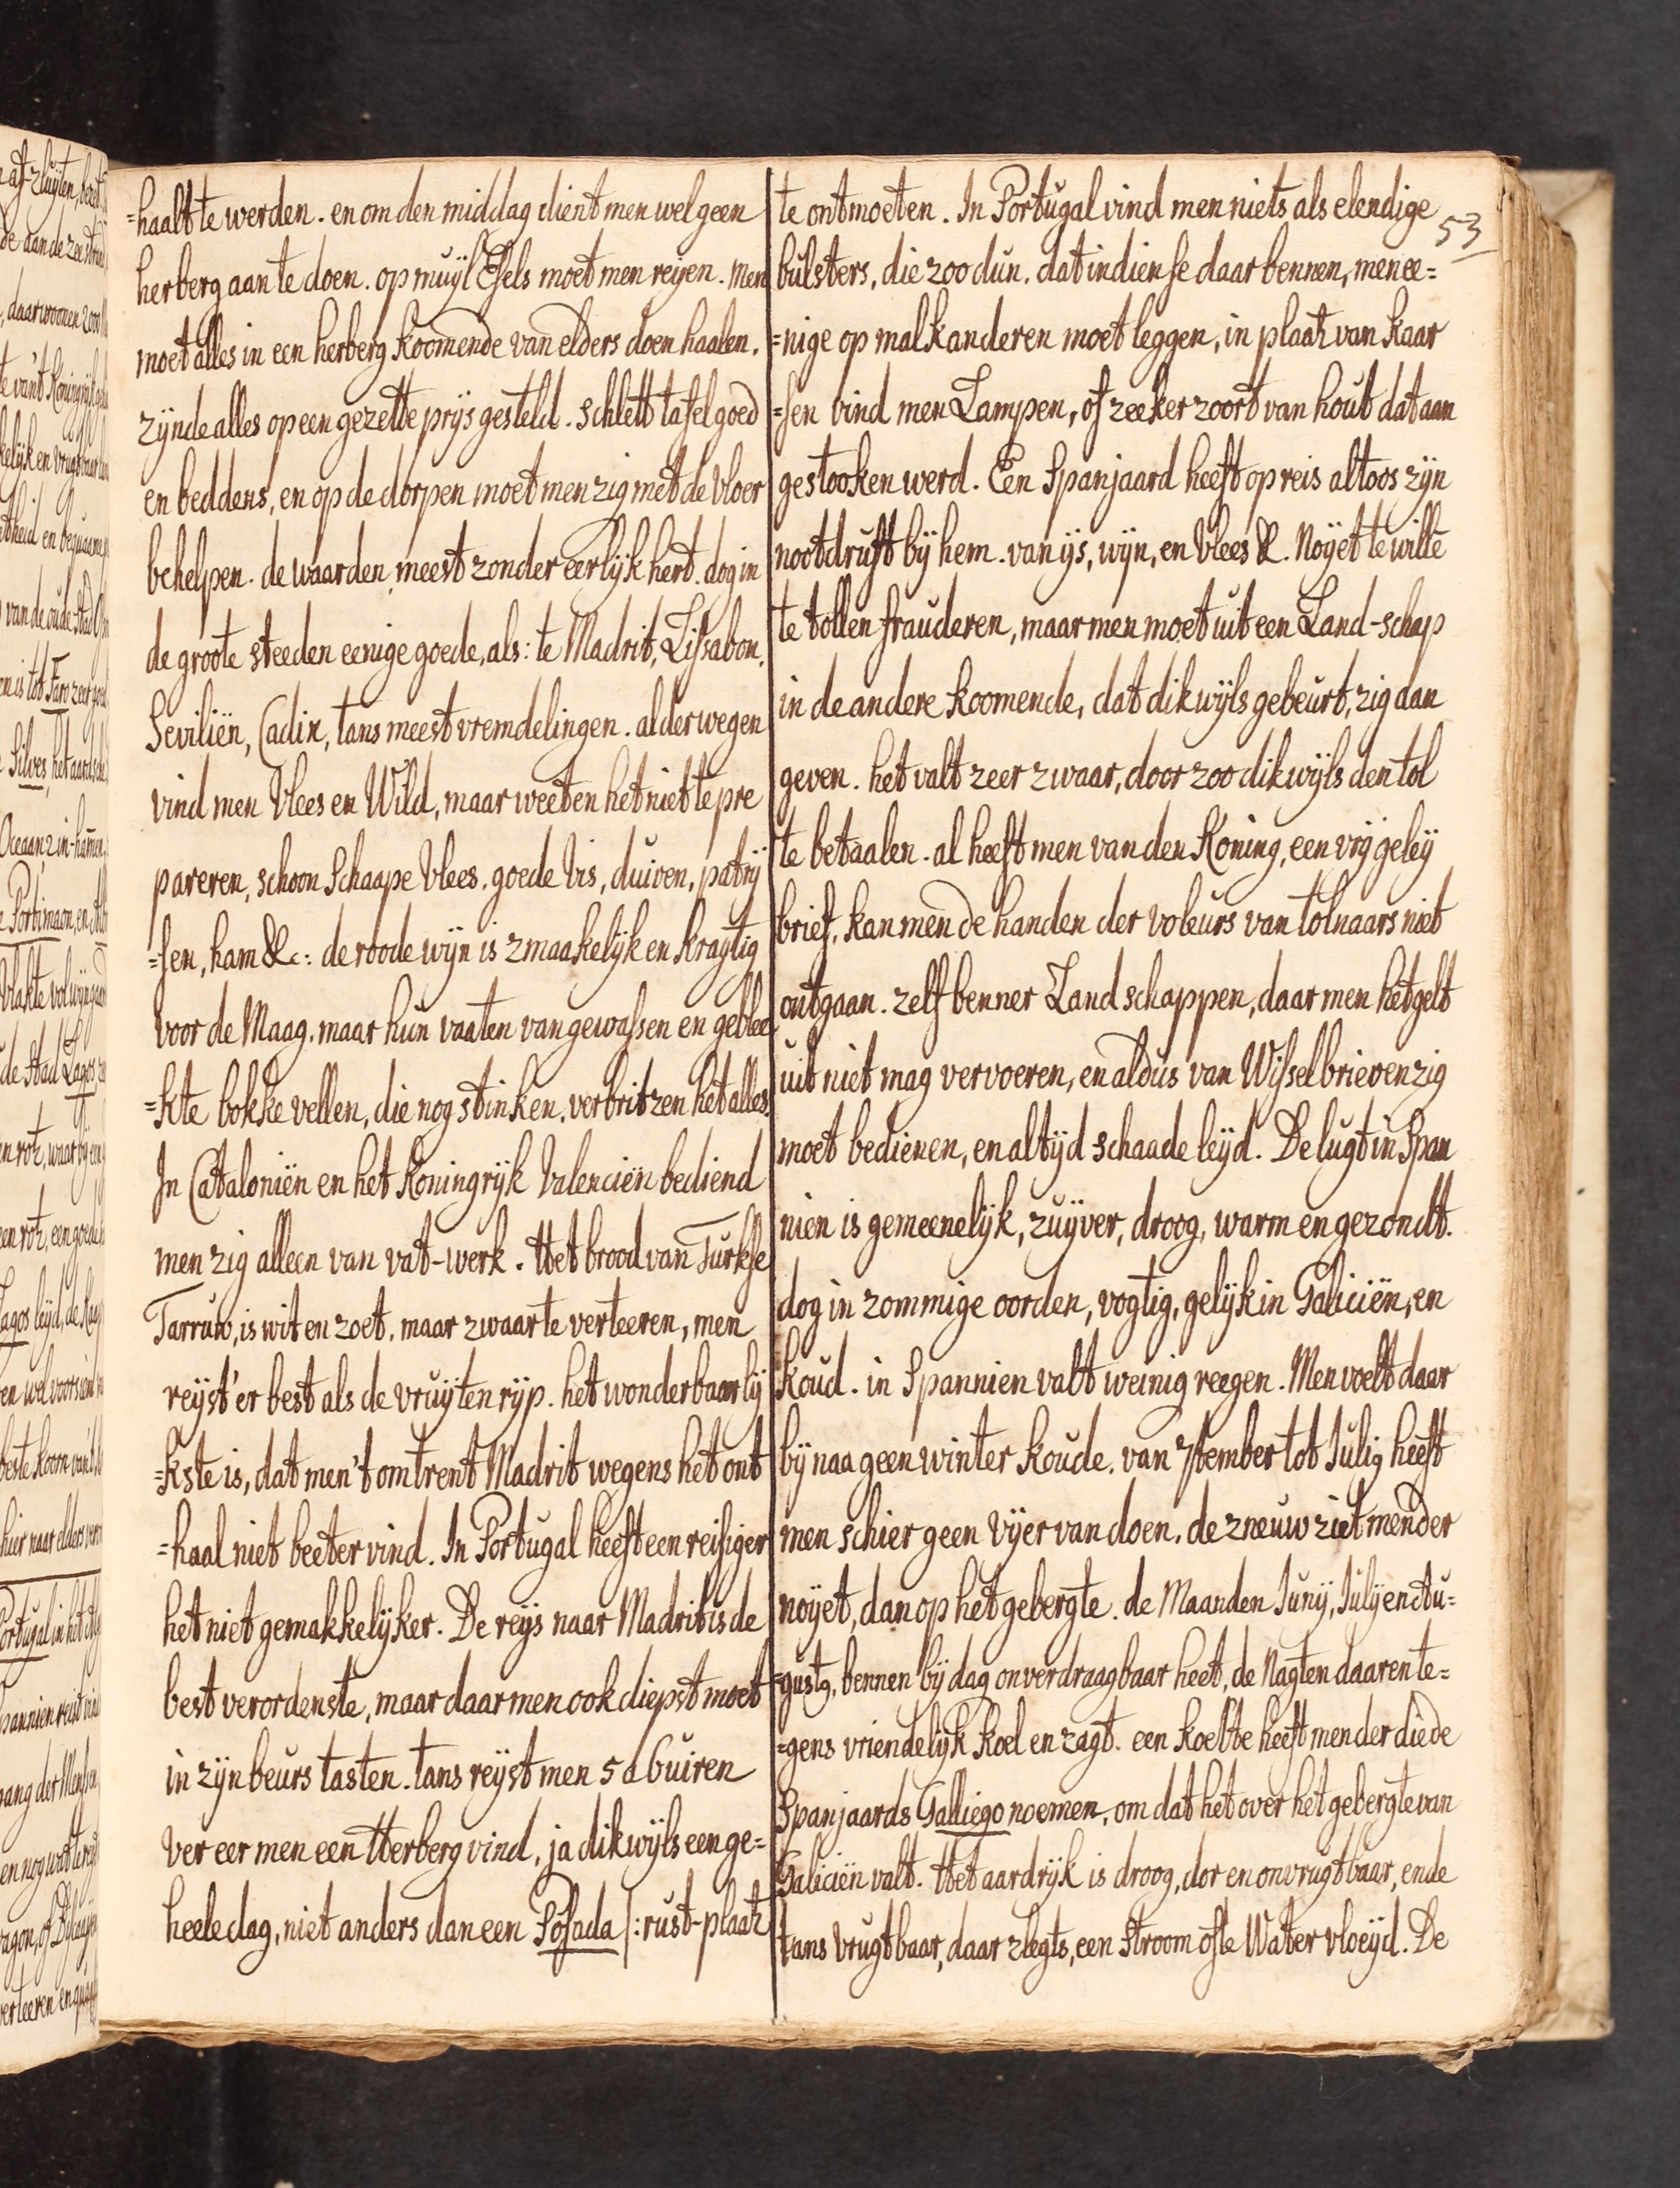 =haalt te werden. en om den middag dient men wel geen
herberg aan te doen. op muyl Esels moet men reijen. Men
moet alles in een herberg koomende van elders doen haalen.
zynde alles op een gezette prys gesteld. schlett tafel goed
en beddens, en op de dorpen moet men zig met de vloer
behelpen. de waarden meest zonder eerlyk hert. dog in
de groote steeden eenige goede, als: te Madrit, Lissabon.
Seviliën, Cadix, tans meest vremdelingen. alderwegen
vind men Vlees en Wild, maar weeten het niet te pre
pareren, schoon Schaape Vlees. goede Vis, duiven, patrij
=sen, ham &c: de roode wyn is zmaakelyk en kragtig
voor de Maag. maar hun vaaten van gewassen en geblee
=kte bokke vellen, die nog stinken. verbritzen het alles.
In Cataloniën en het Koningryk Valenciën bediend
men zig alleen van vat-werk. Het brood van Turkse
Tarruw, is wit en zoet. maar zwaar te verteeren, men
reyst'er best als de vruyten ryp. het wonderbaarly
=kste is, dat men 't omtrent Madrit wegens het ont
=haal niet beeter vind. In Portugal heeft een reisiger
het niet gemakkelyker. De reys naar Madrit is de
best verordenste, maar daar men ook diepst moet
in zyn beurs tasten. tans reyst men 5 a 6 uiren
ver eer men een Herberg vind, ja dikwyls een ge=
heele dag, niet anders dan een Posada /: rust-plaatz
53
te ontmoeten. In Portugal vind men niets als elendige
bulsters, die zoo dun. dat indien se daar bennen, men ee=
=nige op malkanderen moet leggen, in plaatz van kaar
=sen vind men Lampen, of zeeker zoort van hout dat aan
gestooken werd. Een Spanjaard heeft op reis altoos zyn
nootdruft bij hem. van ijs, wyn, en Vlees &. Noyet te wille
te tollen frauderen, maar men moet uit een Land-schap
in de andere koomende, dat dikwyls gebeurt, zig aan
geven. het valt zeer zwaar, door zoo dikwyls den tol
te betaalen. al heeft men van den Koning, een vrij geley
brief, kan men de handen der voleurs van tolnaars niet
ontgaan. zelf benner Land schappen, daar men het gelt
uit niet mag vervoeren, en aldus van Wisselbrieven zig
moet bedienen, en altyd schaade leyd. De lugt in Span
nien is gemeenelyk, zuyver, droog, warm en gezondt.
dog in zommige oorden, vogtig, gelyk in Galiciën, en
koud. in Spannien valt weinig reegen. Men voelt daar
bij naa geen winter koude. van 7tember tot Julij heeft
men schier geen Vyer van doen. de zneuw ziet mender
noyet, dan op het gebergte. de Maanden Juny, July en Au=
=gustg, bennen bij dag onverdraagbaar heet, de Nagten daaren te=
=gens vriendelyk koel en zagt. een koelte heeft mender die de
Spanjaards Galliego noemen, om dat het over het gebergte van
Galiciën valt. Het aardryk is droog, dor en onvrugtbaar, ende
tans vrugtbaar, daar zlegts, een Stroom ofte Water vloeyd. De